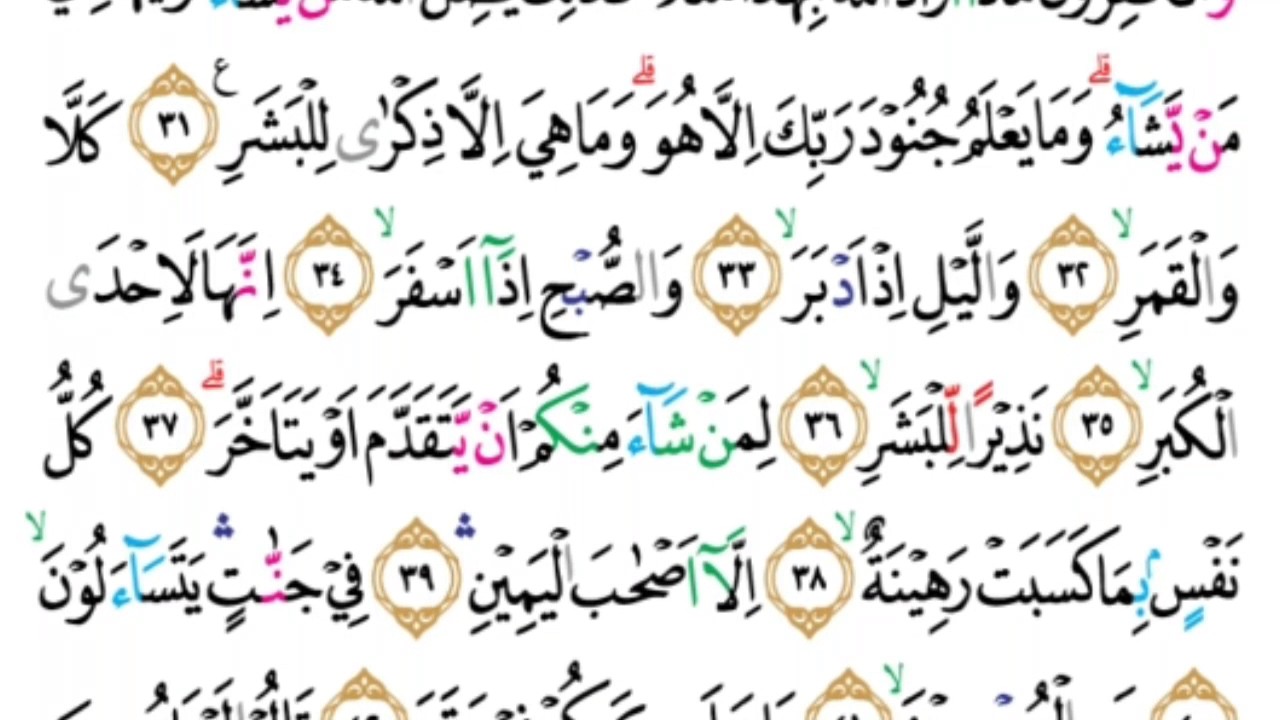 مَنْ يَّشَاۤءُۗ وَمَا يَعْلَمُ جُنُوْدَ رَبِّكَ اِلَّا هُوَۗ وَمَا هِيَ اِلَّا ذِكْرٰى لِلْبَشَرِ ࣖ ٣١ كَلَّا
وَالْقَمَرِۙ ٣٢ وَالَّيْلِ اِذْ اَدْبَرَۙ ٣٣ وَالصُّبْحِ اِذَآ اَسْفَرَۙ ٣٤ اِنَّهَا لَاِحْدَى
الْكُبَرِۙ ٣٥ نَذِيْرًا لِّلْبَشَرِۙ ٣٦ لِمَنْ شَاۤءَ مِنْكُمْ اَنْ يَّتَقَدَّمَ اَوْ يَتَاَخَّرَۗ ٣٧ كُلُّ
نَفْسٍۢ بِمَا كَسَبَتْ رَهِيْنَةٌۙ ٣٨ اِلَّآ اَصْحٰبَ الْيَمِيْنِۛ ٣٩ فِيْ جَنّٰتٍۛ يَتَسَاۤءَلُوْنَۙ